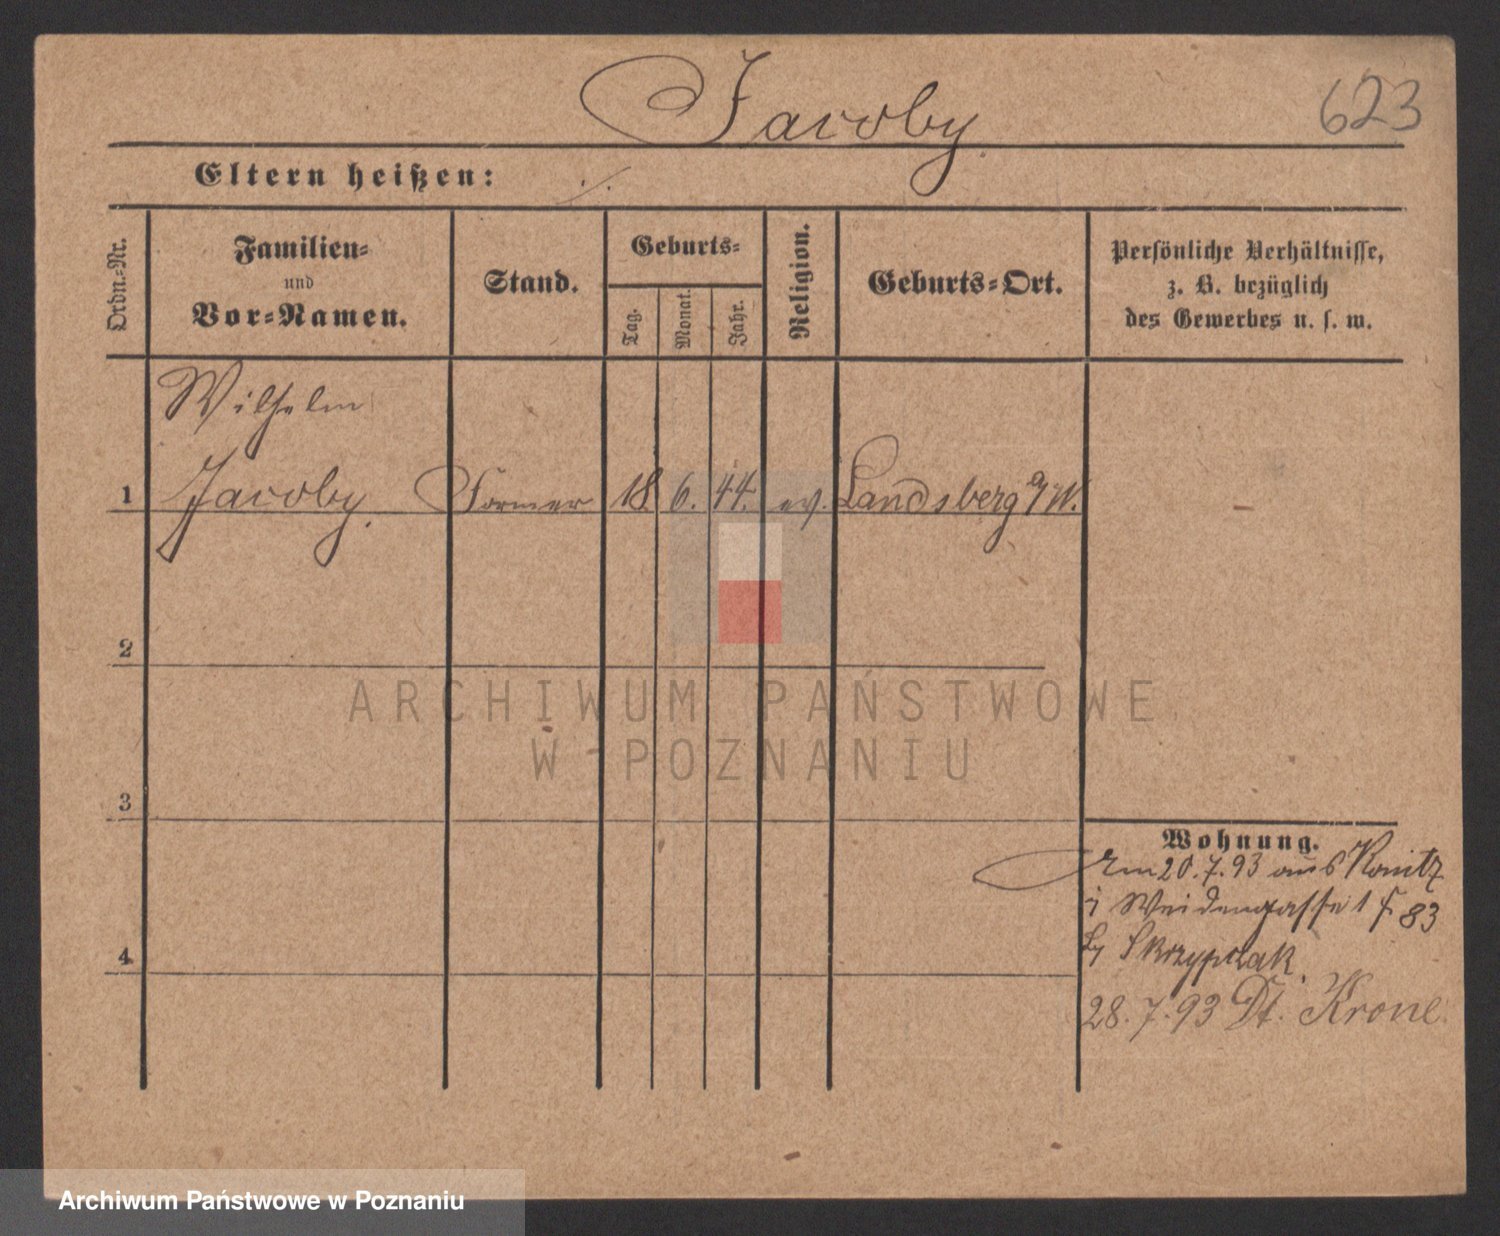 Jacoby.
623
Eltern heißen: ./.
Ordn.-Nr.
Familien-
und
Vor-Namen.
Stand.
Geburts-
Tag.
Monat.
Jahr.
Religion.
Geburts-Ort.
Persönliche Verhältnisse,
z. B. bezüglich
des Gewerbes u. s. w.
Wilhelm
1 Jacoby. Former 18. 6. 44. ev. Landsberg a/W.
2
3
4
Wohnung.
20.7.93 aus Konitz
Weidengasse 1 83
Skrzypczak.
28.7.93 Dt. Krone.
ARCHIWUM PAŃSTWOWE
W POZNANIU
Archiwum Państwowe w Poznaniu